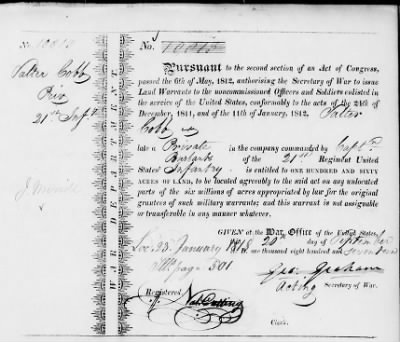 No. 10013
Palter Cobb
Priv
21st Inft
WAR DEPARTMENT.
No. 10013
PURSUANT to the second section of an Act of Congress,
passed the 6th of May, 1812, authorising the Secretary of War to issue
Land Warrants to the noncommissioned Officers and Soldiers enlisted
in the service of the United States, conformably to the acts of the 24th of
December, 1811, and of the 11th of January, 1812, Palter
Cobb
late a Private in the company commanded by Captn
of the 21st Regiment United
States' Infantry is entitled to ONE HUNDRED AND SIXTY
ACRES OF LAND, to be located agreeably to the said act on any unlocated
parts of the six millions of acres appropriated by law for the original
grantees of such military warrants; and this warrant is not assignable
or transferable in any manner whatever.
GIVEN at the War Office of the United States,
Loc. 23. January 1818 this 20th day of September
one thousand eight hundred and seventeen
Ills. page 301
Geo. Graham
Acting Secretary of War.
Registered
Clerk.